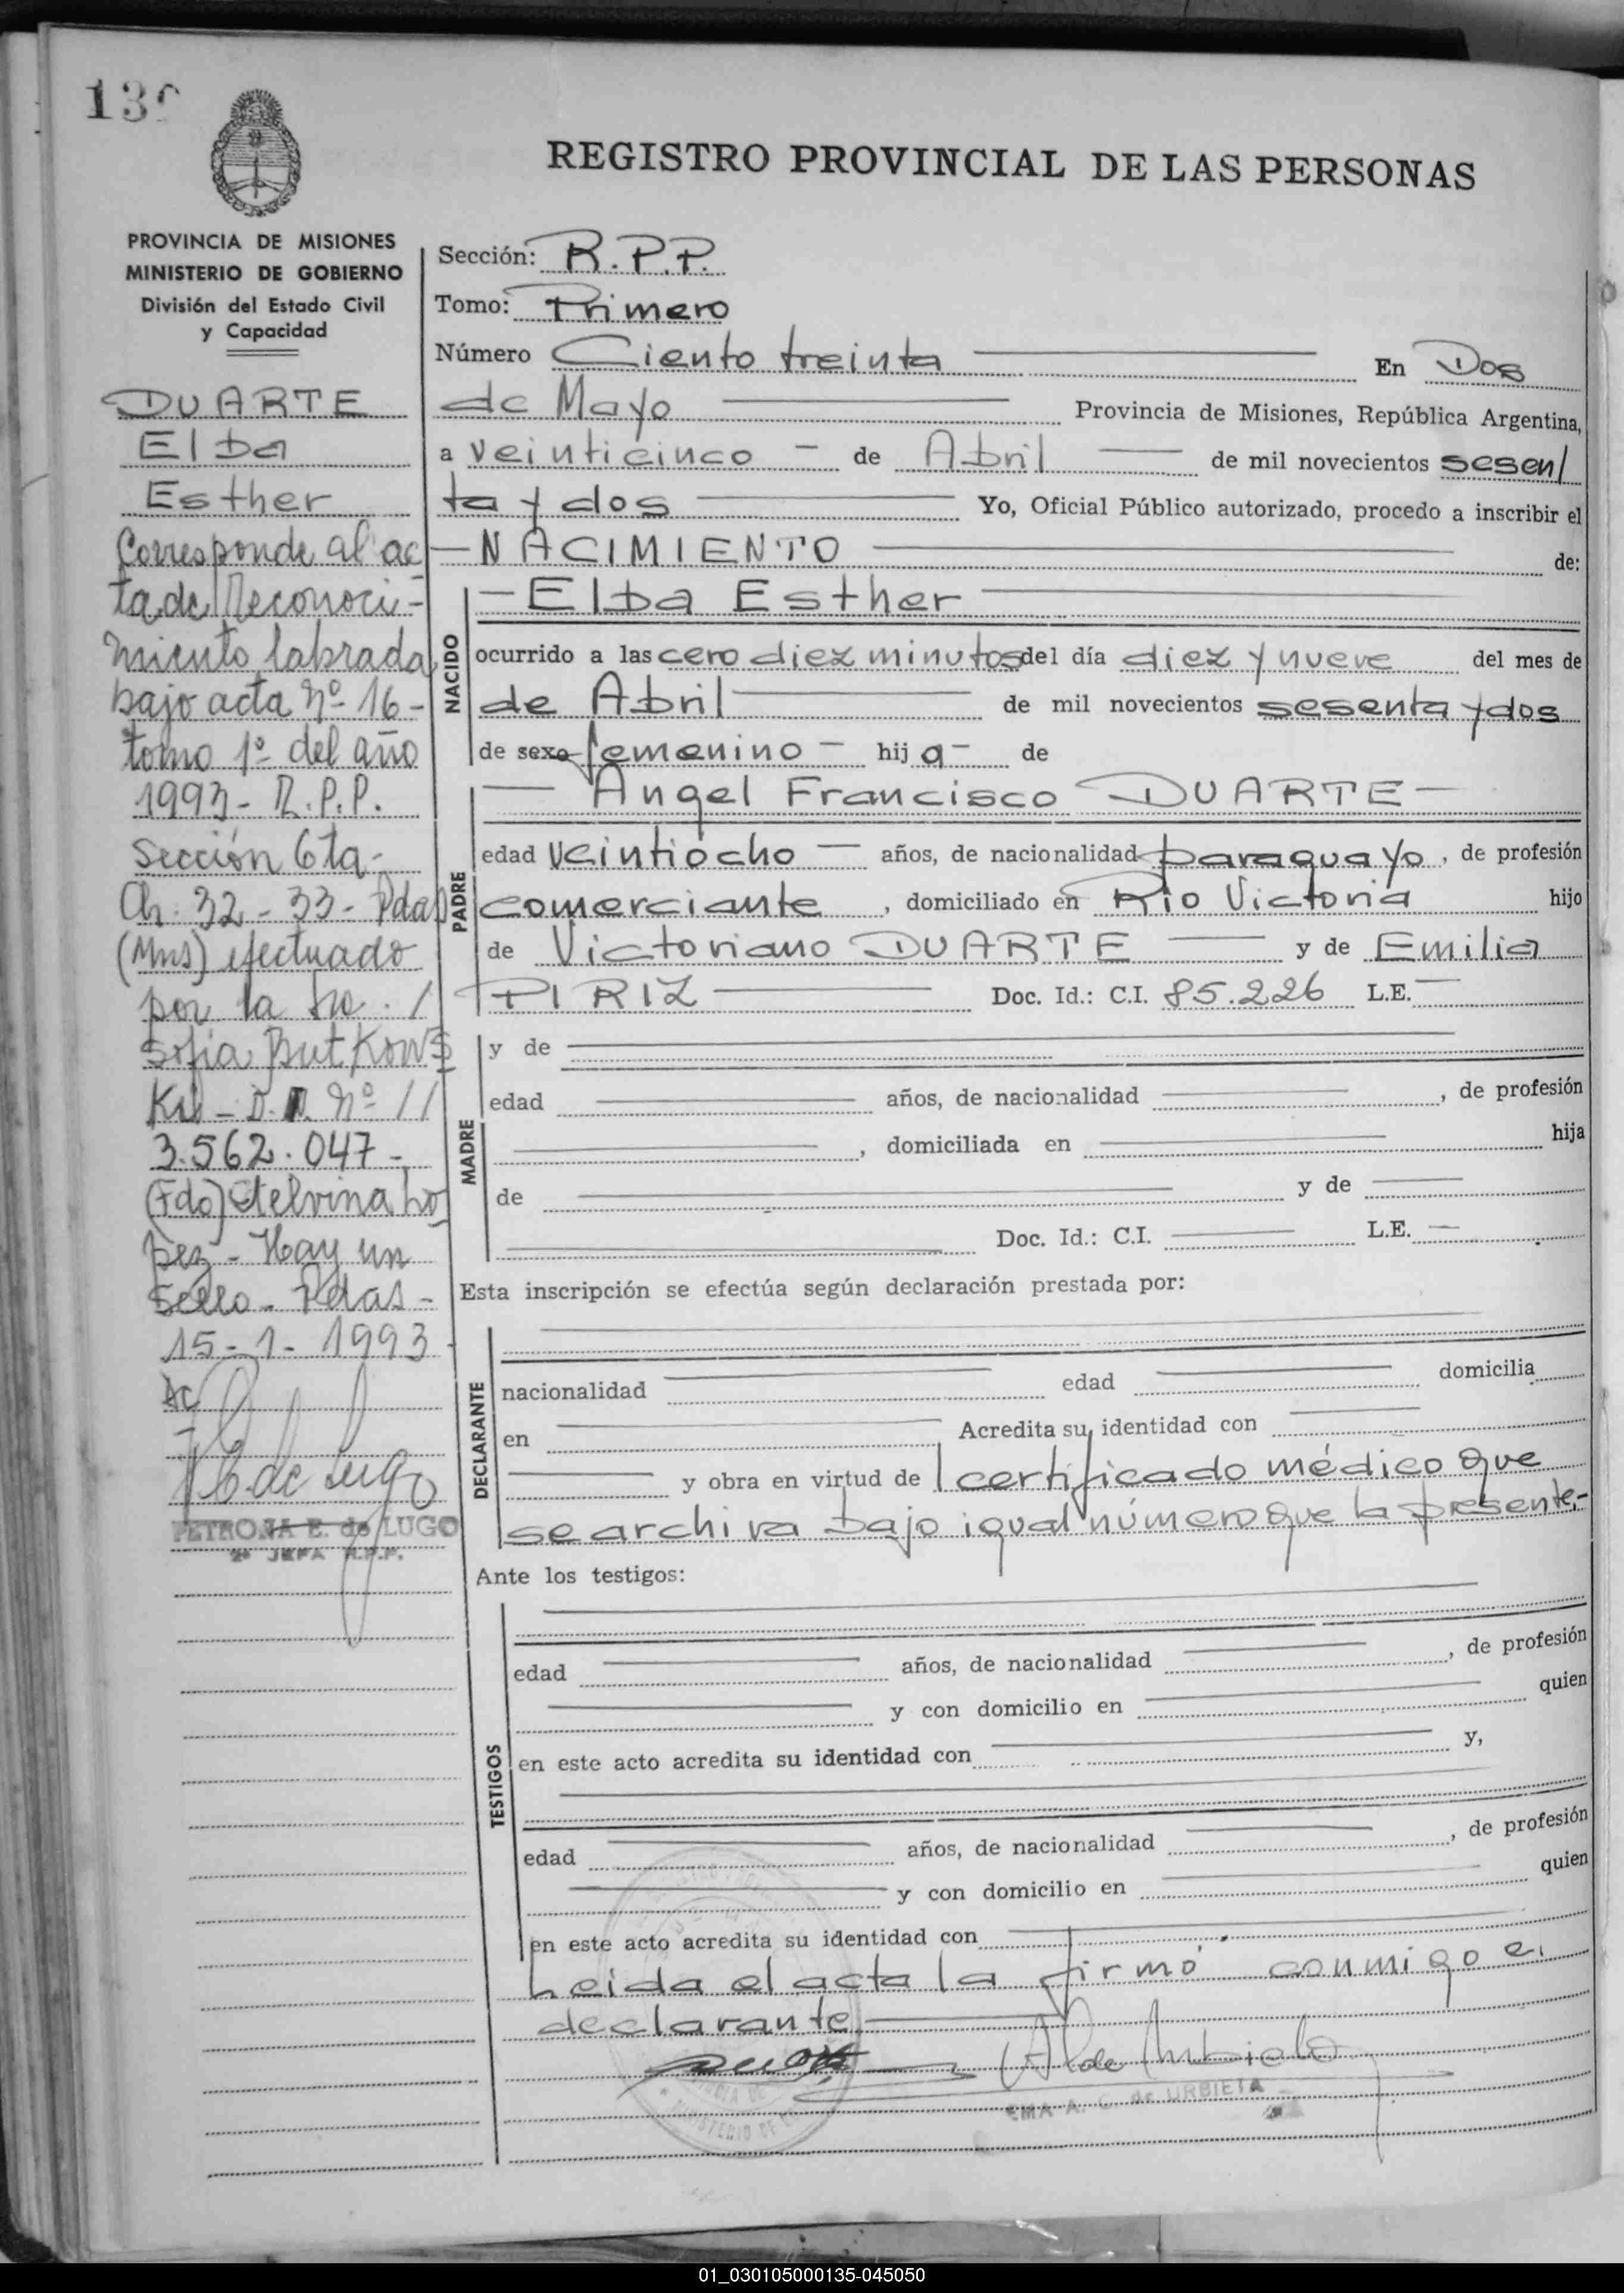 13
REGISTRO PROVINCIAL DE LAS PERSONAS
PROVINCIA DE MISIONES
MINISTERIO DE GOBIERNO
División del Estado Civil
y Capacidad
DUARTE
Elba
Esther
Corresponde al ac-
ta de Reconoci-
miento labrada
bajo acta nº 16-
tomo 1º del año
1993- R.P.P.
Sección 6ta-
Ch. 32-33- Pdas
(Mns) efectuado
por la Sra. /
Sofia Butkows
Ki - D. nº //
3.562.047-
(Fdo) Etelvina Lo
pez - Hay un
Sello - Pdas -
15-1-1993
AC
B de Lugo
PETRONA B. de LUGO
2ª JEFA R.P.P.
Sección: R.P.P.
Tomo: Primero
Número Ciento treinta En Dos
de Mayo Provincia de Misiones, República Argentina,
a veinticinco - de Abril de mil novecientos sesen/
ta y dos Yo, Oficial Público autorizado, procedo a inscribir el
- NACIMIENTO de:
NACIDO
- Elba Esther
ocurrido a las cero diez minutos del día diez y nueve del mes de
de Abril de mil novecientos sesenta y dos
de sexo femenino - hij a - de
PADRE
- Angel Francisco DUARTE -
edad veintiocho - años, de nacionalidad paraguayo, de profesión
comerciante, domiciliado en Rio Victoria hijo
de Victoriano DUARTE y de Emilia
PIRIZ Doc. Id.: C.I. 85.226 L.E. -
MADRE
y de
edad años, de nacionalidad , de profesión
, domiciliada en hija
de y de
Doc. Id.: C.I. L.E. -
Esta inscripción se efectúa según declaración prestada por:
DECLARANTE
nacionalidad edad domicilia
en Acredita su identidad con
y obra en virtud de / certificado médico que
se archiva bajo igual número que la presente.-
Ante los testigos:
TESTIGOS
edad años, de nacionalidad , de profesión
y con domicilio en quien
en este acto acredita su identidad con y,
edad años, de nacionalidad , de profesión
y con domicilio en quien
en este acto acredita su identidad con
Leida el acta la firmó conmigo el
declarante
A. de Urbieta
EMA A. C. de URBIETA
MINISTERIO DE
01_030105000135-045050